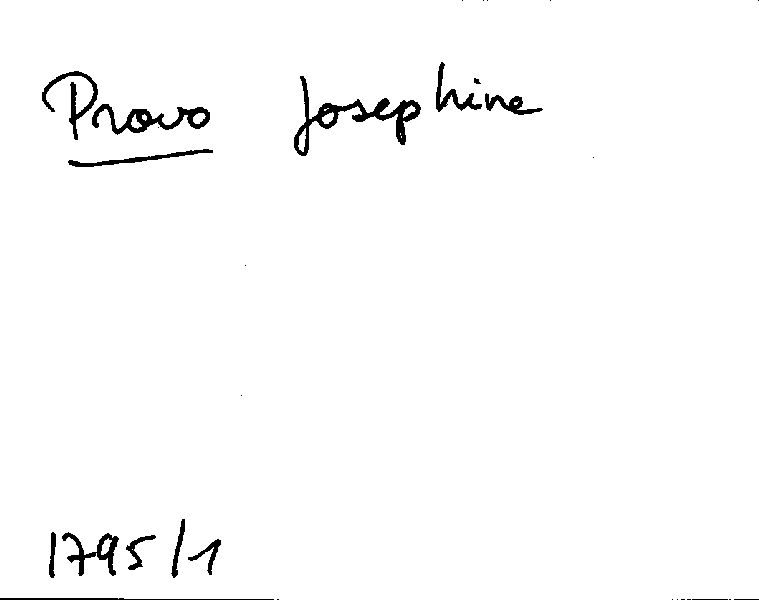 Provo Josephine
1795/1